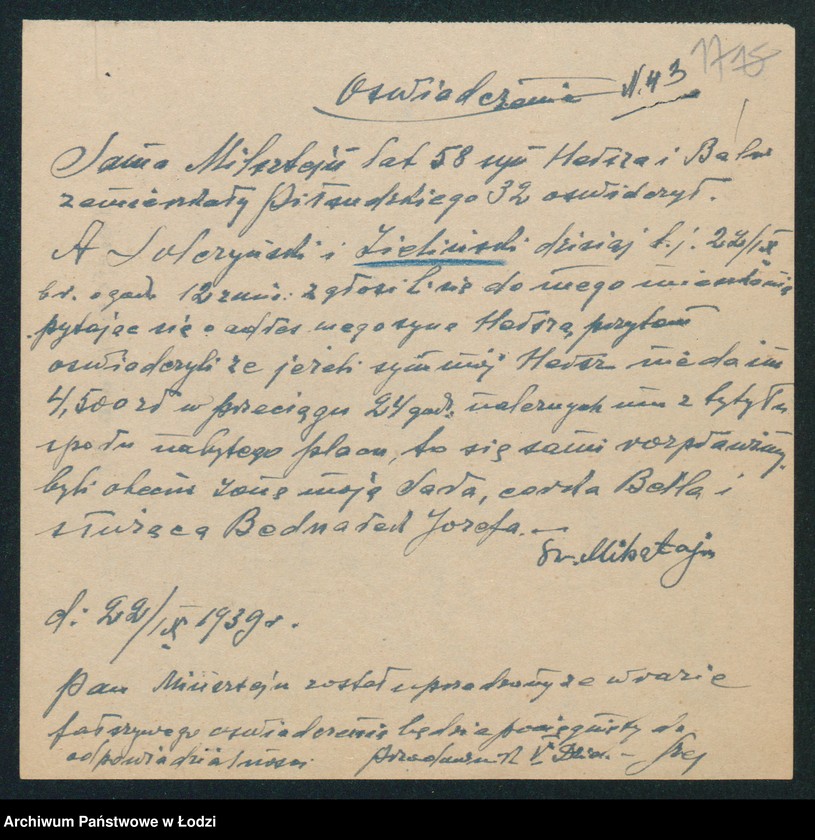 1775
Oswiadczenie N. 43
Jama Milsztejn lat 58 syn Hersza i Bal
zamieszkały Piłsudskiego 32 oswidczył.
A Solczyński i Zieliński dzisiaj t.j. 22/IX
br. o godz 12 zgłosili się do mego mieszkania
pytając się o adres mego syna Hersza, przytem
oswiadczyli że jeżeli syn mój Hersz nie da im
4,500 zł w przeciągu 24 godz. należnych im z tytułu
nabytego placu, to się sami rozprawimy.
byli obecni żonę moją Sara, corka Bella i
służąca Bednarek Jozefa. —
Mikołaj
d: 22/IX 1939 r.
Pan Milsztejn został uprzedzony że w razie
fałszywego oswiadczenia będzie pociągnięty do
odpowiedzialnosci Przodownik V Dzie. —
Archiwum Państwowe w Łodzi